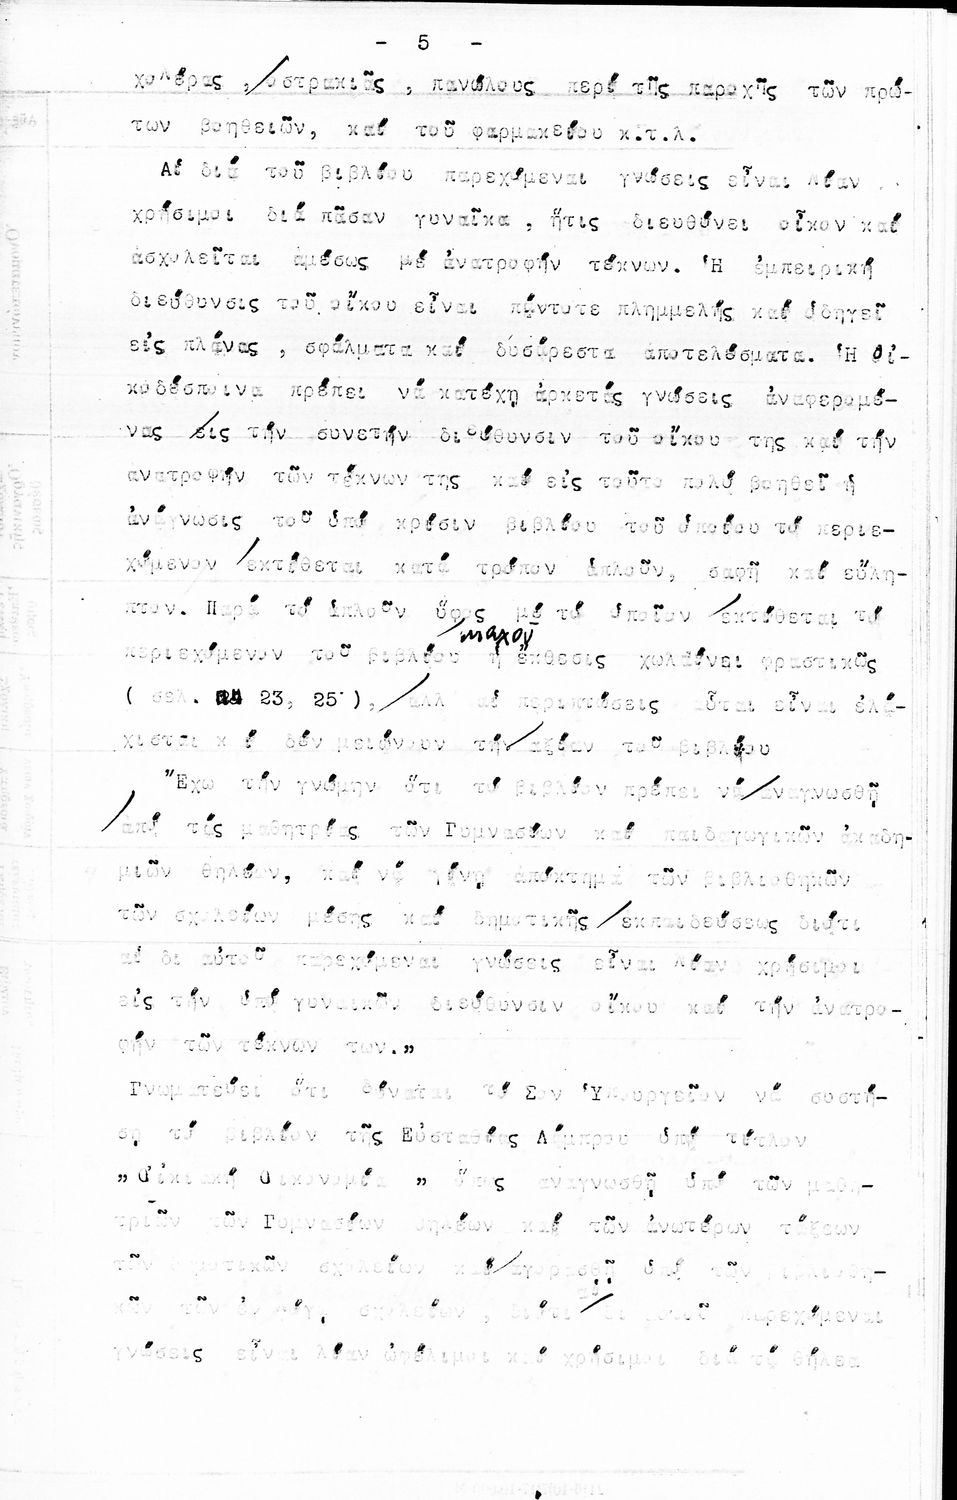 - 5 -
χολέρας , ὀστρακιᾶς , πανώλους περί τῆς παροχῆς τῶν πρώ-
των βοηθειῶν, καί τοῦ φαρμακείου κ.τ.λ.
Αἱ διά τοῦ βιβλίου παρεχόμεναι γνώσεις εἶναι λίαν
χρήσιμοι διά πᾶσαν γυναῖκα , ἥτις διευθύνει οἶκον καί
ἀσχολεῖται ἀμέσως μέ ἀνατροφήν τέκνων. Ἡ ἐμπειρική
διεύθυνσις τοῦ οἴκου εἶναι πάντοτε πλημμελής καί ὁδηγεῖ
εἰς πλάνας , σφάλματα καί δυσάρεστα ἀποτελέσματα. Ἡ οἰ-
κοδέσποινα πρέπει νά κατέχη ἀρκετάς γνώσεις ἀναφερομέ-
νας εἰς τήν συνετήν διεύθυνσιν τοῦ οἴκου της καί τήν
ανατροφήν τῶν τέκνων της καί εἰς τοῦτο πολύ βοηθεῖ ἡ
ἀνάγνωσις τοῦ ὑπό κρίσιν βιβλίου τοῦ ὁποίου τό περιε-
χόμενον ἐκτίθεται κατά τρόπον ἁπλοῦν, σαφῆ καί εὔλη-
πτον. Παρά τό ἁπλοῦν ὕφος μέ τό ὁποῖον ἐκτίθεται τό
περιεχόμενον τοῦ βιβλίου ἡ ἔκθεσις χωλαίνει φραστικῶς
( σελ. 23, 25 ), ἀλλ αἱ περιπτώσεις αὗται εἶναι ἐλά-
χισται κ ί δέν μειώνουν τήν ἀξίαν τοῦ βιβλίου
"Εχω τήν γνώμην ὅτι τό βιβλίον πρέπει νά ἀναγνωσθῆ
ἀπό τάς μαθητρίας τῶν Γυμνασίων καί παιδαγωγικῶν ἀκαδη-
μιῶν θηλέων, καί νά γίνη ἀπόκτημα τῶν βιβλιοθηκῶν
τῶν σχολείων μέσης καί δημοτικῆς ἐκπαιδεύσεως διότι
αἱ δι αὐτοῦ παρεχόμεναι γνώσεις εἶναι λίαν χρήσιμοι
εἰς τήν ὑπό γυναικῶν διεύθυνσιν οἴκου καί τήν ἀνατρο-
φήν τῶν τέκνων των.„
Γνωματεύει ὅτι δύναται τό Σον Ὑπουργεῖον νά συστή-
ση τό βιβλίον τῆς Εὐσταθίας Λάμπρου ὑπό τίτλον
„ Οἰκιακή Οικονομία „ ὅπως αναγνωσθῆ ὑπό τῶν μαθη-
τριῶν τῶν Γυμνασίων θηλέων καί τῶν ἀνωτέρων τάξεων
τῶν δημοτικῶν σχολείων καί ἀγορασθῆ ὑπό τῶν βιβλιοθη-
κῶν τῶν ἐν λόγω σχολείων , διότι αἱ δι αὐτοῦ παρεχόμεναι
γνώσεις εἶναι λίαν ὠφέλιμοι καί χρήσιμοι διά τά θήλεα